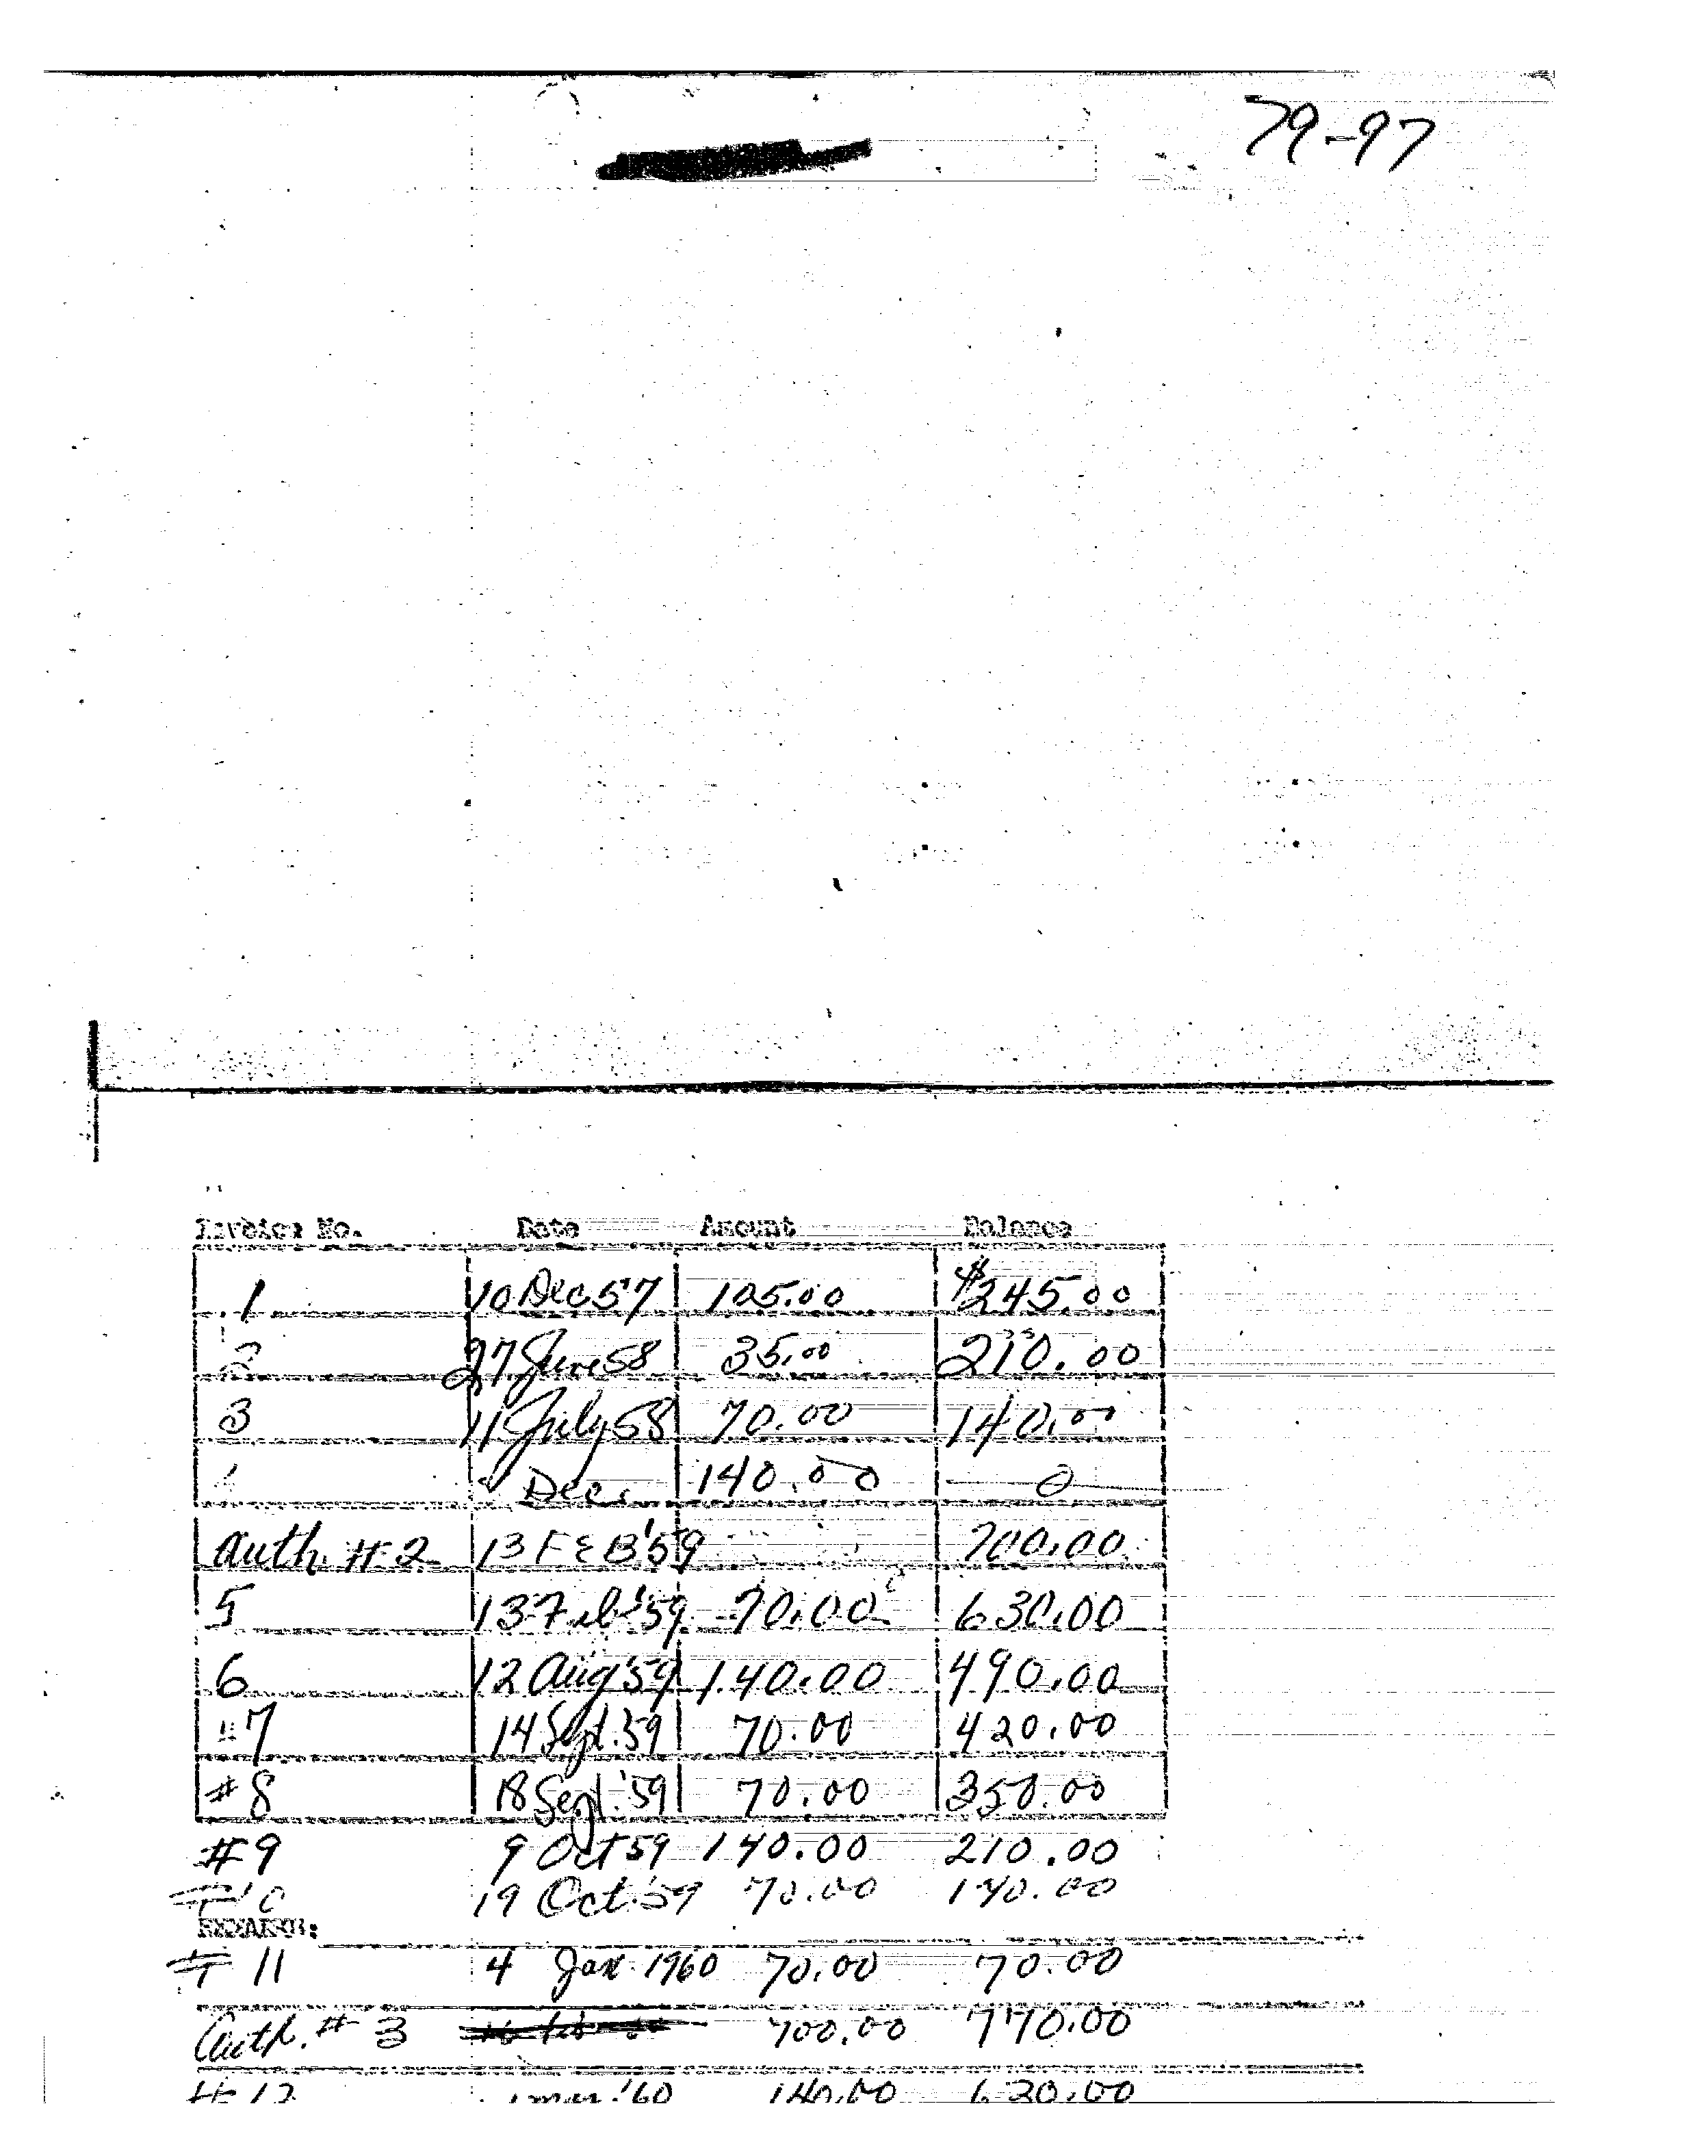 79-97
Invoice No. Date Amount Balance
1 10 Dec 57 105.00 $245.00
2 27 June 58 35.00 210.00
3 11 July 58 70.00 140.00
Dec. 140.00 0
Auth. #2 13 FEB '59 700.00
5 13 Feb '59 70.00 630.00
6 12 Aug '59 140.00 490.00
#7 14 Sept. '59 70.00 420.00
#8 18 Sept. '59 70.00 350.00
#9 9 Oct 59 140.00 210.00
#10 19 Oct. '59 70.00 140.00
REMARKS:
#11 4 Jan. 1960 70.00 70.00
Auth. #3 700.00 770.00
#12 mar. '60 140.00 630.00